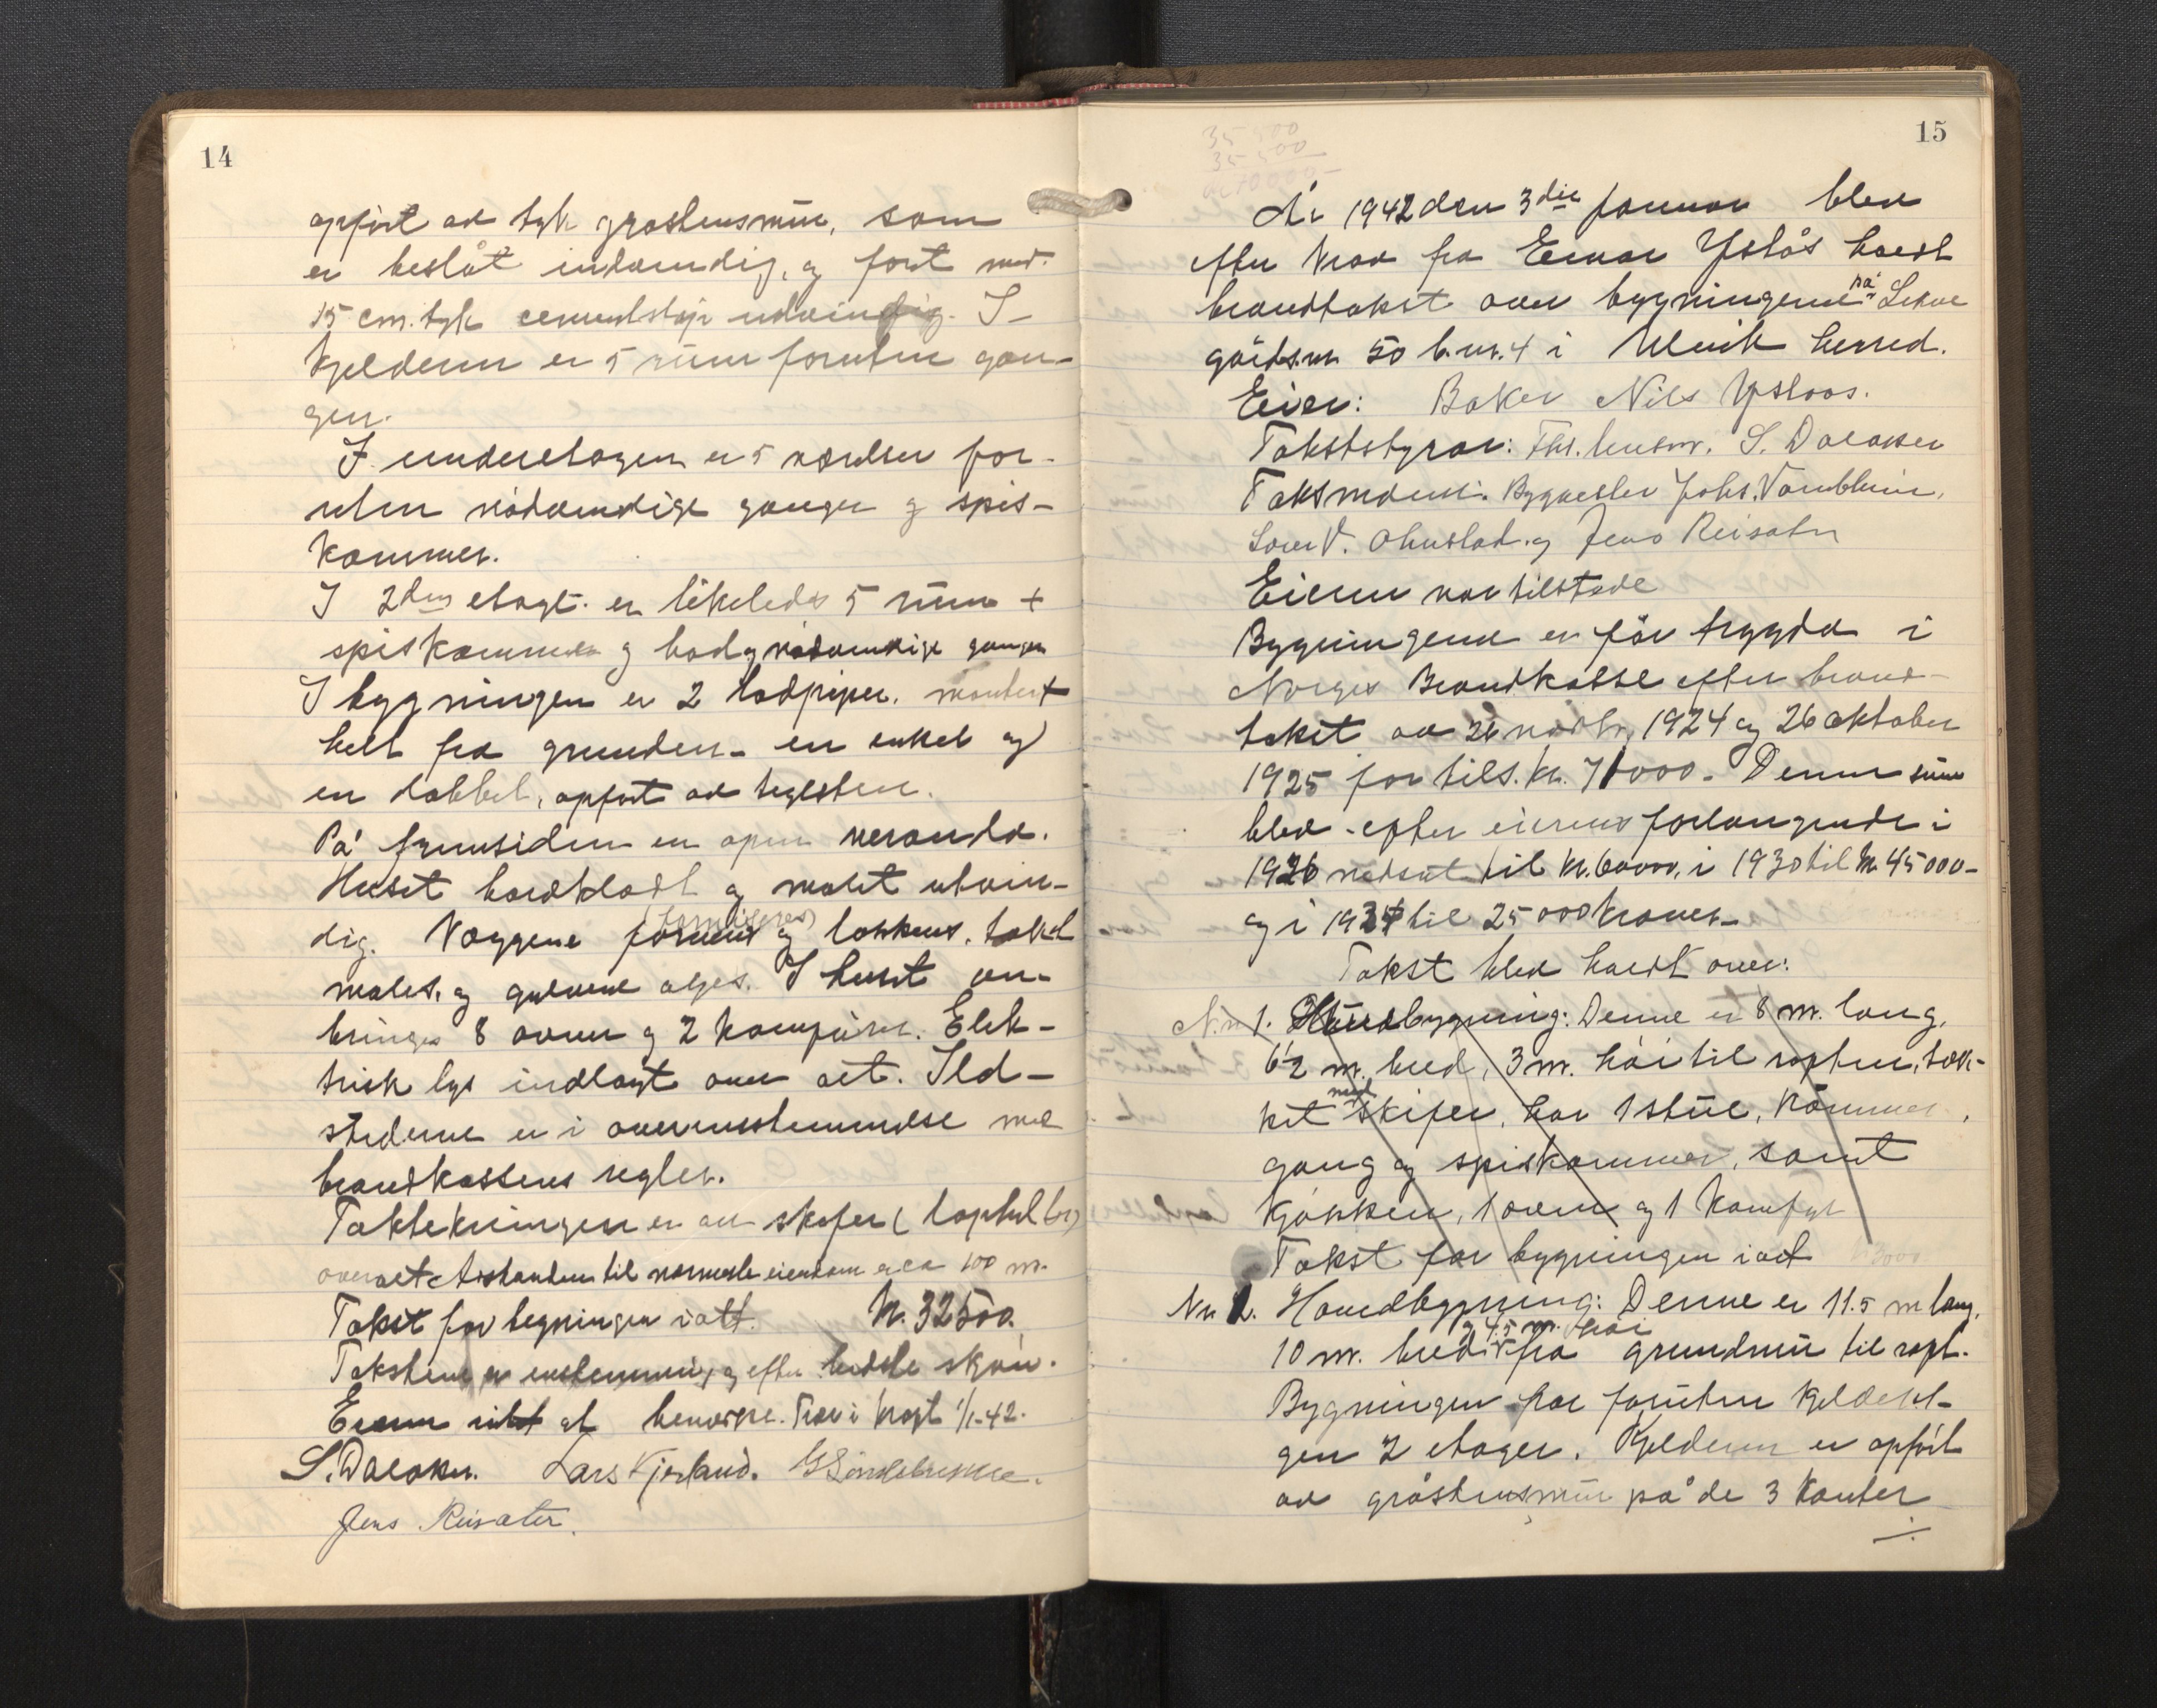 14
opført av tyk graastensmur, som
er beslåt indvendig, og foret med
15 cm. tyk cementstøp udvendig. I
kjelderen er 5 rum foruten gan-
gen.
I underetagen er 5 værelser for-
uten nødvendige ganger og spis-
kammer.
I 2den etage er likeledes 5 rum +
spiskammer og bod og nødvendige ganger
I bygningen er 2 lodpiper. murt
helt fra grunden - en enkel og
en dobbel, opført av teglsten.
På fremsiden en open veranda.
Huset bordklædt og malet utven-
dig. Væggene og takene, taket
males, og gulvene oljes. I huset an-
bringes 8 ovner og 2 komfürer. Elek-
trisk lys indlagt over alt. Ild-
stederne er i overensstemmelse med
brandkassens regler.
Taktekningen er av skifer (
overalt Avstanden til nærmeste eiendom er ca 100 m.
Takst for bygningen i alt. kr. 32500.
Taksten er enstemmig og efter bedste skjøn.
Eieren at bemerke. Træ i kraft 1/1-42.
S. Dalaker. Lars Kjerland.
Jens Reisæter.
15
35 500
35 500
År 1942 den 3die januar blev
efter krav fra Einar Ystås holdt
brandtakst over bygningene på Lekve
gårds.nr. 50 b.nr. 4 i Ulvik herred.
Eier: Baker Nils Ystaas.
Takstbstyrar: Fhv. lensm. S. Dalaker
Takstmenn: Bygmester Johs. Vambheim,
Lars V. Ohnstad. og Jens Reisæter
Eieren var tilstede
Bygningene er før trygda i
Norges Brandkasse efter brand-
takst av 26 novbr. 1924 og 26 oktober
1925 for tils. kr. 71000 - Denne sum
blev efter eierens forlangende i
1926 nedsat til kr. 60000, i 1930 til kr 45000-
og i 1934 til 25000 kroner -
Takst blev holdt over:
N.nr 1. bygning: Denne er 8 m. lang,
6½ m. bred, 3 m. høi til røsten, tæk-
ket med skifer, har 1 stue, kammer,
gang og spiskammer, samt
kjøkken, 1 ovn og 1 komfyr
Takst for bygningen i alt 3000
Nr. 1. Hovedbygning: Denne er 11.5 m lang,
10 m. bred og 4,5 m. høi fra grundmur til røst.
Bygningen har foruten kjelderet-
gen 2 etager. Kjelderen er opført
av gråstensmur på de 3 kanter
./.